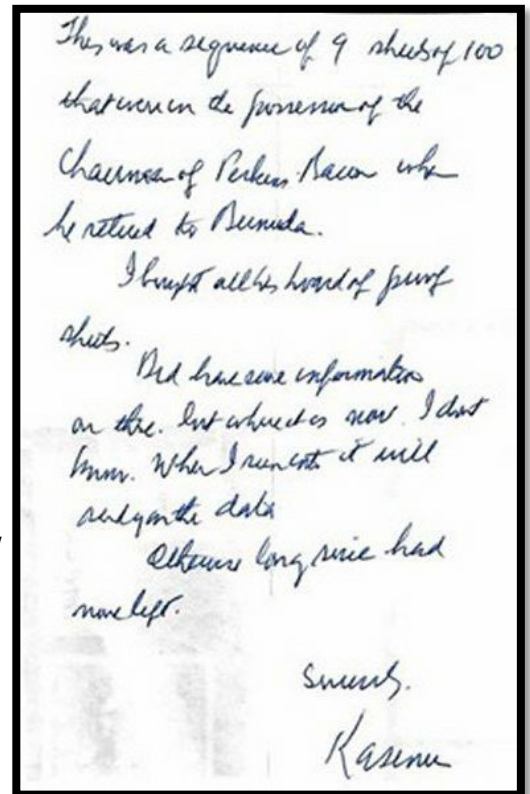 This was a sequence of 9 sheets of 100
that were in the possession of the
Chairman of Perkins Bacon when
he retired to Bermuda.
I bought all his hoard of proof
sheets.
Did have some information
on this. But where it is now. I dont
know. When I run into it will
send you the data
Otherwise long since had
none left.
Sincerely.